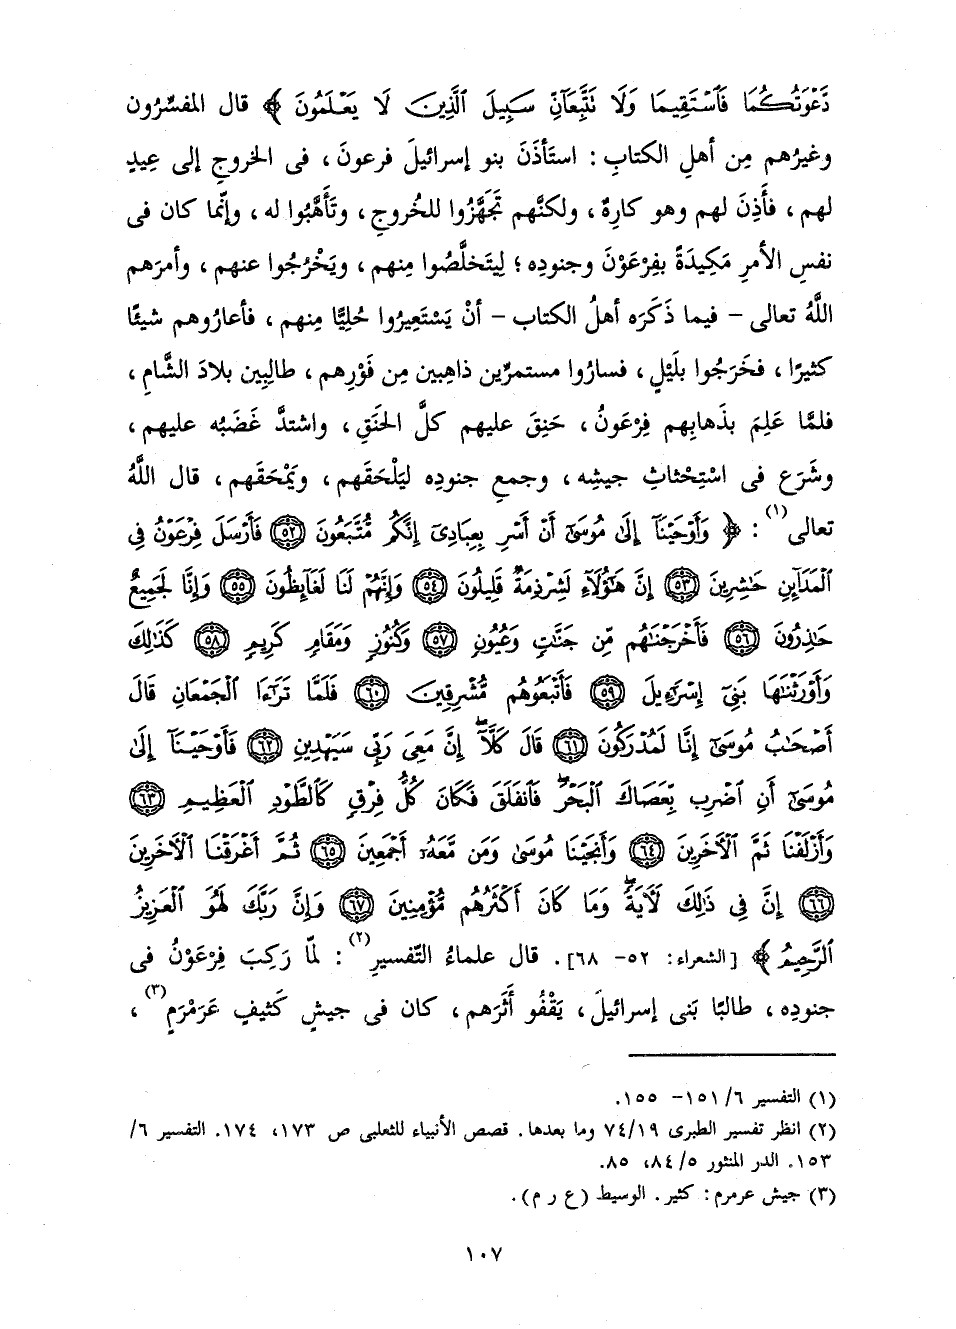 دَّعْوَتُكُمَا فَٱسْتَقِيمَا وَلَا تَتَّبِعَآنِّ سَبِيلَ ٱلَّذِينَ لَا يَعْلَمُونَ ﴾ قال المفسِّرُون
وغيرُهم مِن أهلِ الكتابِ : استأذَنَ بنو إسرائيلَ فرعونَ ، فى الخروجِ إلى عِيدٍ
لهم ، فأَذِنَ لهم وهو كارِهٌ ، ولكنَّهم تَجَهَّزُوا للخُروجِ ، وتَأَهَّبُوا له ، وإنَّما كان فى
نفسِ الأمرِ مَكِيدَةً بفِرْعَوْنَ وجنودِه ؛ لِيَتَخلَّصُوا مِنهم ، ويَخْرُجُوا عنهم ، وأمرَهم
اللَّهُ تعالى - فيما ذَكَرَه أهلُ الكتاب - أنْ يَسْتَعِيرُوا حُلِيًّا مِنهم ، فأعارُوهم شيئًا
كثيرًا ، فخَرَجُوا بلَيْلٍ ، فسارُوا مستمرِّين ذاهِبين مِن فَوْرِهم ، طالِبِين بلادَ الشَّامِ ،
فلمَّا عَلِمَ بذَهابِهم فِرْعَونُ ، حَنِقَ عليهم كلَّ الحَنَقِ ، واشتدَّ غَضَبُه عليهم ،
وشَرَع فى اسْتِحْثاثِ جيشِه ، وجمعِ جنودِه ليَلْحَقَهم ، ويَمْحَقَهم ، قال اللَّهُ
تعالى(١) : ﴿ وَأَوْحَيْنَآ إِلَىٰ مُوسَىٰٓ أَنْ أَسْرِ بِعِبَادِىٓ إِنَّكُم مُّتَّبَعُونَ ٥٢ فَأَرْسَلَ فِرْعَوْنُ فِى
ٱلْمَدَآئِنِ حَٰشِرِينَ ٥٣ إِنَّ هَٰٓؤُلَآءِ لَشِرْذِمَةٌ قَلِيلُونَ ٥٤ وَإِنَّهُمْ لَنَا لَغَآئِظُونَ ٥٥ وَإِنَّا لَجَمِيعٌ
حَٰذِرُونَ ٥٦ فَأَخْرَجْنَٰهُم مِّن جَنَّٰتٍ وَعُيُونٍ ٥٧ وَكُنُوزٍ وَمَقَامٍ كَرِيمٍ ٥٨ كَذَٰلِكَ
وَأَوْرَثْنَٰهَا بَنِىٓ إِسْرَٰٓءِيلَ ٥٩ فَأَتْبَعُوهُم مُّشْرِقِينَ ٦٠ فَلَمَّا تَرَٰٓءَا ٱلْجَمْعَانِ قَالَ
أَصْحَٰبُ مُوسَىٰٓ إِنَّا لَمُدْرَكُونَ ٦١ قَالَ كَلَّآ ۖ إِنَّ مَعِىَ رَبِّى سَيَهْدِينِ ٦٢ فَأَوْحَيْنَآ إِلَىٰ
مُوسَىٰٓ أَنِ ٱضْرِب بِّعَصَاكَ ٱلْبَحْرَ ۖ فَٱنفَلَقَ فَكَانَ كُلُّ فِرْقٍ كَٱلطَّوْدِ ٱلْعَظِيمِ ٦٣
وَأَزْلَفْنَا ثَمَّ ٱلْءَاخَرِينَ ٦٤ وَأَنجَيْنَا مُوسَىٰ وَمَن مَّعَهُۥٓ أَجْمَعِينَ ٦٥ ثُمَّ أَغْرَقْنَا ٱلْءَاخَرِينَ
٦٦ إِنَّ فِى ذَٰلِكَ لَءَايَةً ۖ وَمَا كَانَ أَكْثَرُهُم مُّؤْمِنِينَ ٦٧ وَإِنَّ رَبَّكَ لَهُوَ ٱلْعَزِيزُ
ٱلرَّحِيمُ ﴾ [الشعراء: ٥٢- ٦٨]. قال علماءُ التَّفسيرِ(٢) : لمَّا رَكِبَ فِرْعَوْنُ فى
جنودِه ، طالبًا بَنى إسرائيلَ ، يَقْفُو أَثَرَهم ، كان فى جيشٍ كَثيفٍ عَرَمْرَمٍ(٣) ،
(١) التفسير ٦/ ١٥١- ١٥٥.
(٢) انظر تفسير الطبرى ٧٤/١٩ وما بعدها. قصص الأنبياء للثعلبى ص ١٧٣، ١٧٤. التفسير ٦/
١٥٣. الدر المنثور ٥/ ٨٤، ٨٥.
(٣) جيش عرمرم: كثير. الوسيط (ع ر م).
١٠٧